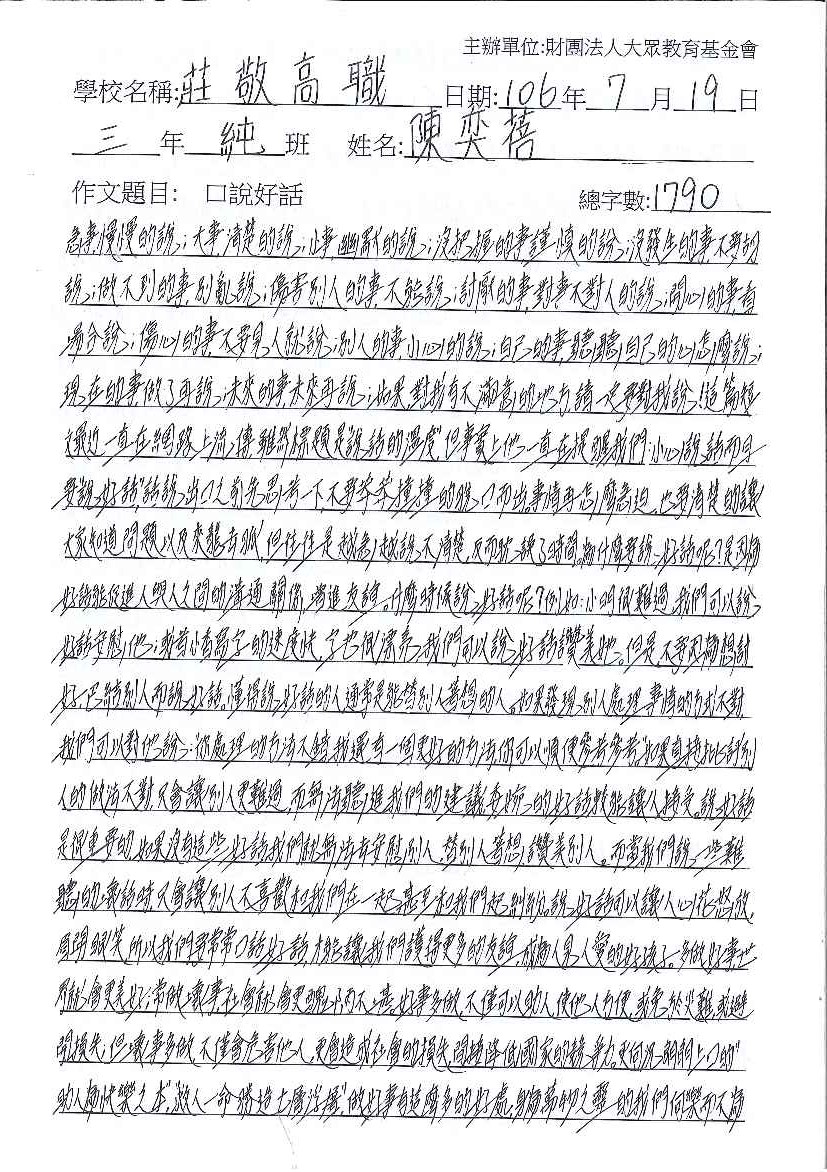 主辦單位:財團法人大眾教育基金會
學校名稱:莊敬高職 日期:106年7月19日
三年純班 姓名:陳奕蓓
作文題目: 口說好話 總字數:1790
急事,慢慢的說;大事,清楚的說;小事,幽默的說;沒把握的事,謹慎的說;沒發生的事,不要胡
說;做不到的事,別亂說;傷害別人的事,不能說;討厭的事,對事不對人的說;開心的事,看
場合說;傷心的事,不要見人就說;別人的事,小心的說;自己的事,聽聽自己的心怎麼說;
現在的事,做了再說;未來的事,未來再說;如果,對我有不滿意的地方,請一定要對我說!這篇短
文最近一直在網路上流傳,雖然標題是"說話的溫度",但事實上他一直在提醒我們:小心說話而且
要說"好話"話說出口之前先思考一下,不要莽莽撞撞的脫口而出。事情再怎麼急迫,也要清楚的讓
大家知道問題以及來龍去脈,但往往是越急越說不清楚,反而耽誤了時間。為什麼要說好話呢?是因為
好話能促進人與人之間的溝通關係,增進友誼。什麼時候說好話呢?例如:小明很難過,我們可以說
好話安慰他;或者小香寫字的速度快,字也很漂亮,我們可以說好話讚美她。但是,不要因為想討
好、巴結別人而說好話。懂得說好話的人通常是能替別人著想的人。如果發現別人處理事情的方式不對,
我們可以對他說:你處理的方法不錯,我還有一個更好的方法,你可以順便參考參考。如果直接批評別
人的做法不對,只會讓別人更難過,而無法聽進我們的建議,委婉的好話較能讓人接受。說好話
是很重要的,如果沒有這些好話,我們就無法去安慰別人、替別人著想、讚美別人。而當我們說一些難
聽的壞話時,只會讓別人不喜歡和我們在一起,甚至和我們起糾紛。說好話可以讓人心花怒放、
眉開眼笑,所以我們要常常口說好話,才能讓我們獲得更多的友誼,成為人見人愛的好孩子。多做好事,世
界就會更美好;常做壞事,社會就會更 好事多做,不僅可以助人,使他人方便,或免於災難,或避
開損失;但壞事多做,不僅會危害他人,更會造成社會的損失,間接降低國家的競爭力。更何況朗朗上口的"
助人為快樂之本"、"救人一命勝造七層浮屠"做好事有這麼多的好處,身為萬物之靈的我們何樂而不為